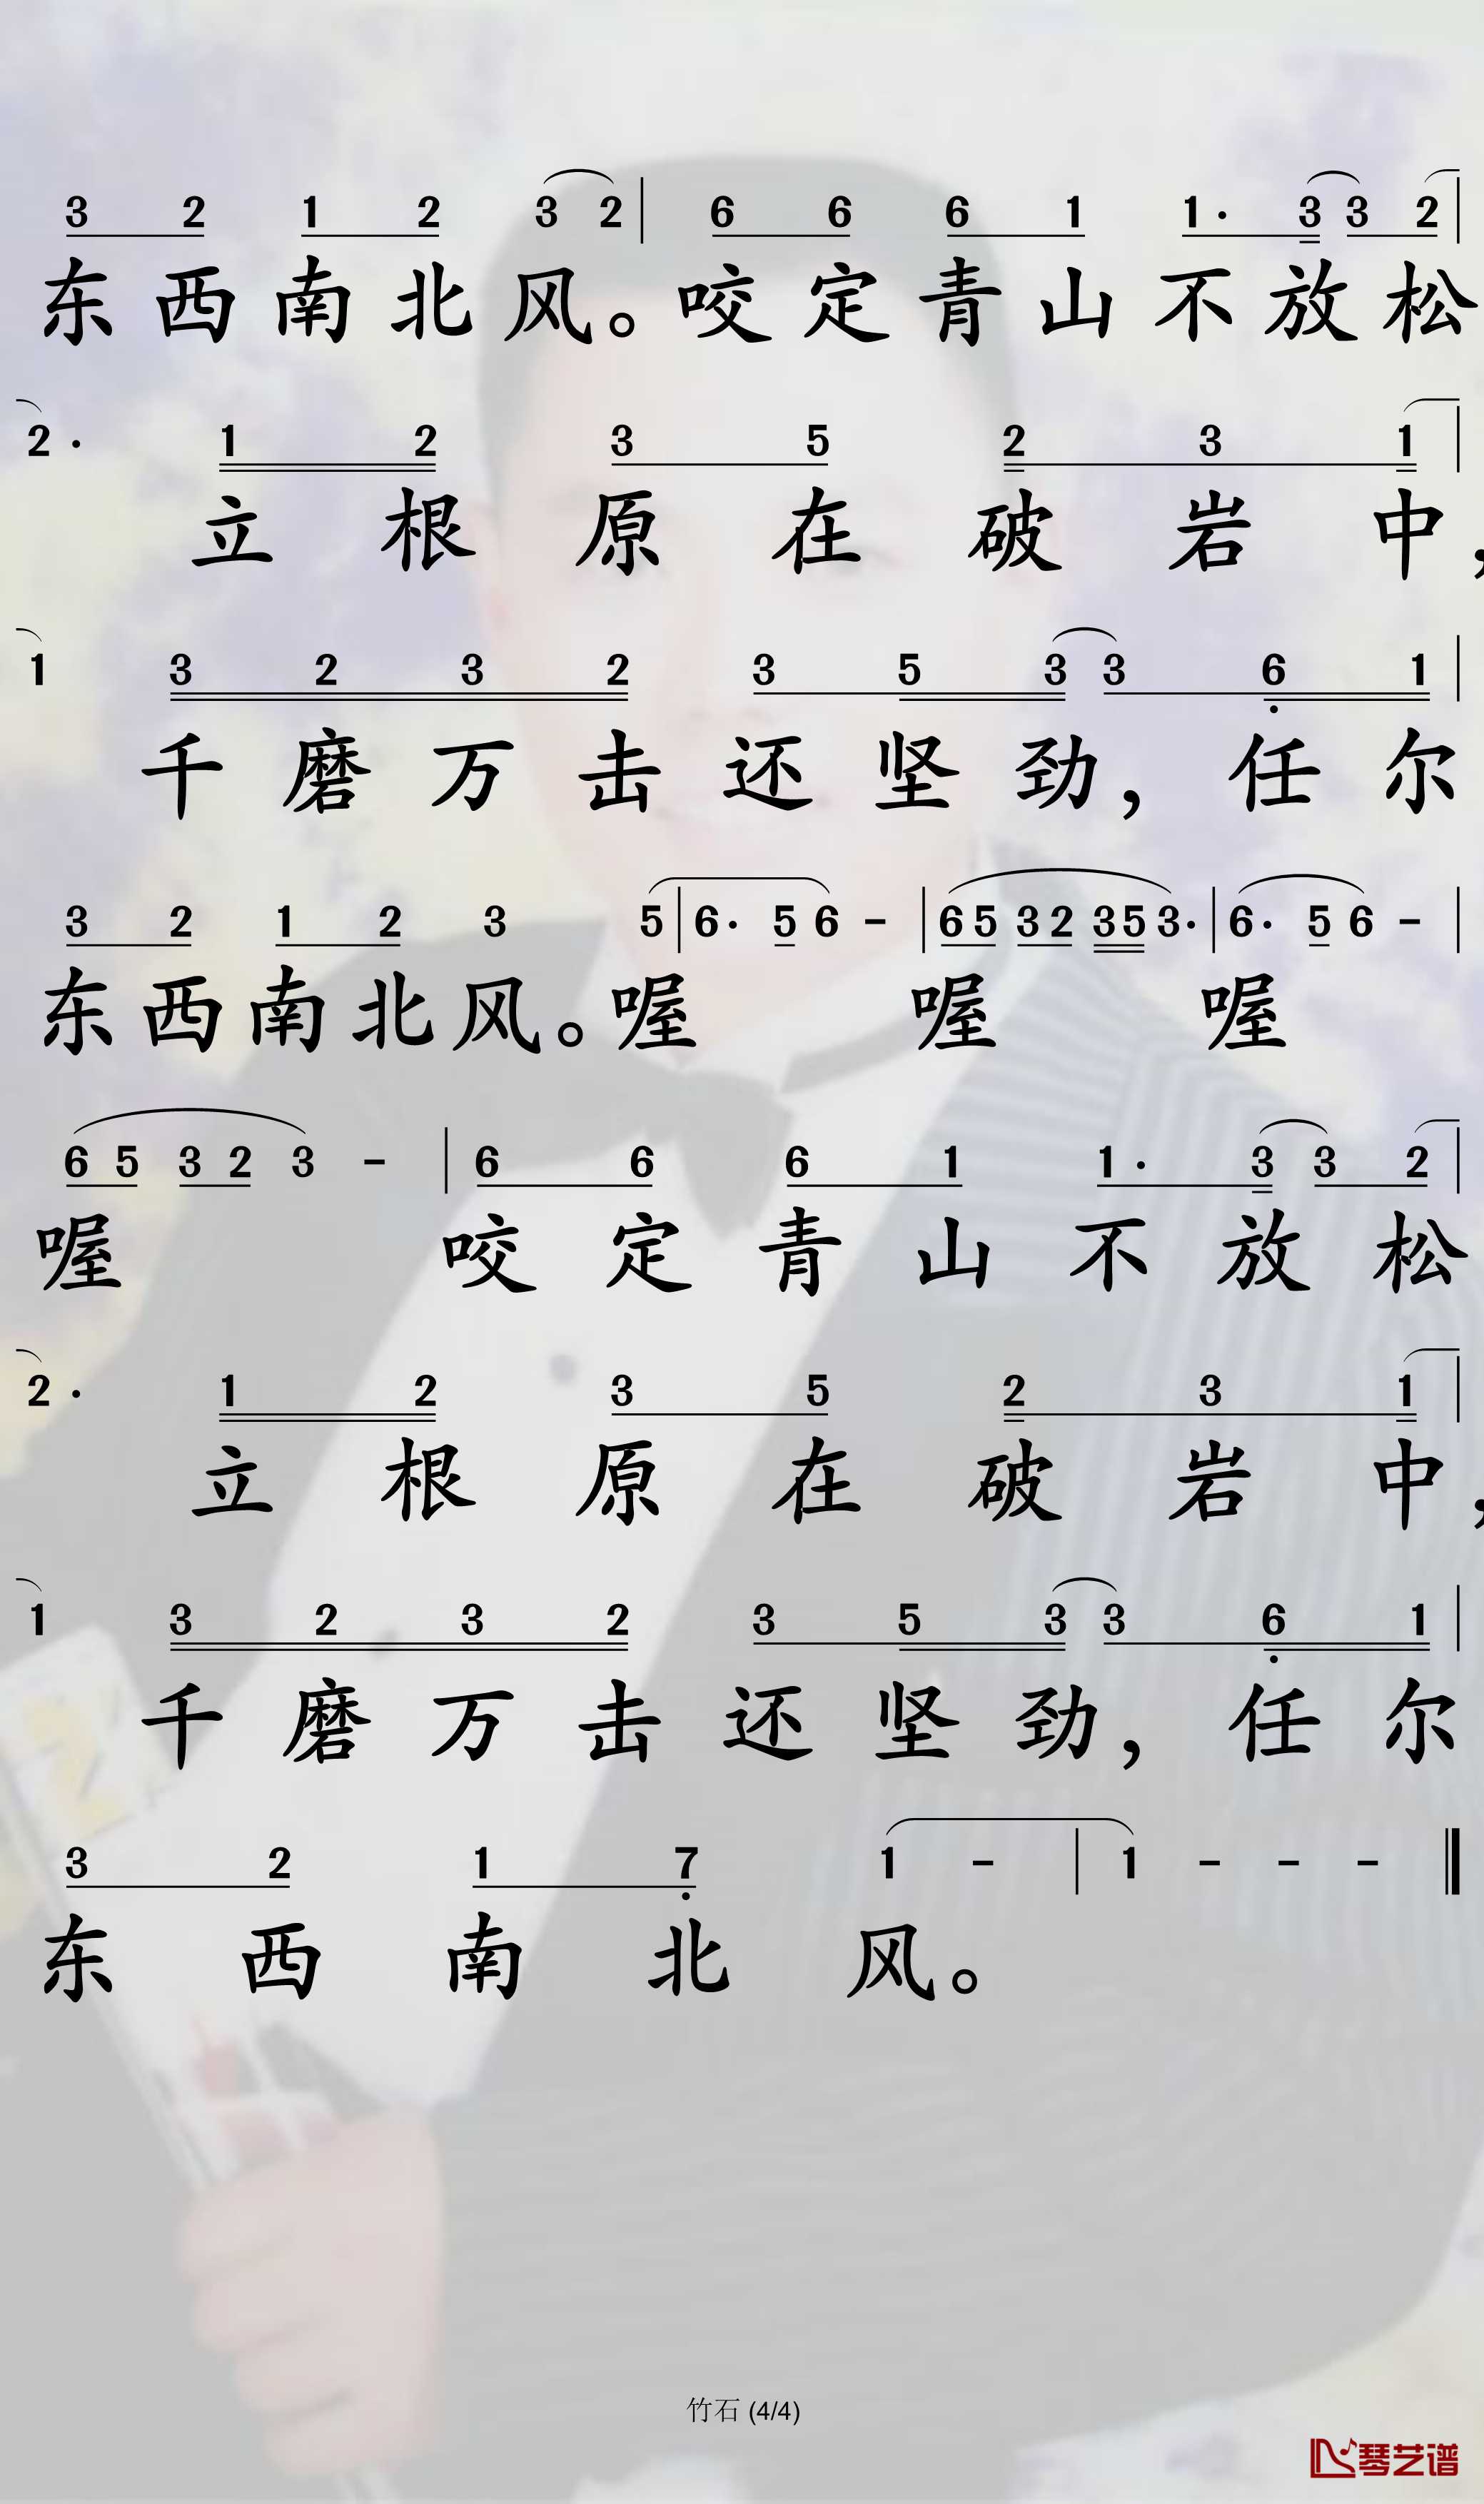 3 2 1 2 3 2 | 6 6 6 1 1· 3 3 2 |
东西南北风。咬定青山不放松
2· 1 2 3 5 2 3 1 |
立根原在破岩中，
1 3 2 3 2 3 5 3 3 6 1 |
千磨万击还坚劲，任尔
3 2 1 2 3 5 | 6· 5 6 - | 6 5 3 2 3 5 3· | 6· 5 6 - |
东西南北风。喔 喔 喔
6 5 3 2 3 - | 6 6 6 1 1· 3 3 2 |
喔 咬定青山不放松
2· 1 2 3 5 2 3 1 |
立根原在破岩中，
1 3 2 3 2 3 5 3 3 6 1 |
千磨万击还坚劲，任尔
3 2 1 7 1 - | 1 - - - ‖
东西南北风。
竹石 (4/4)
琴艺谱